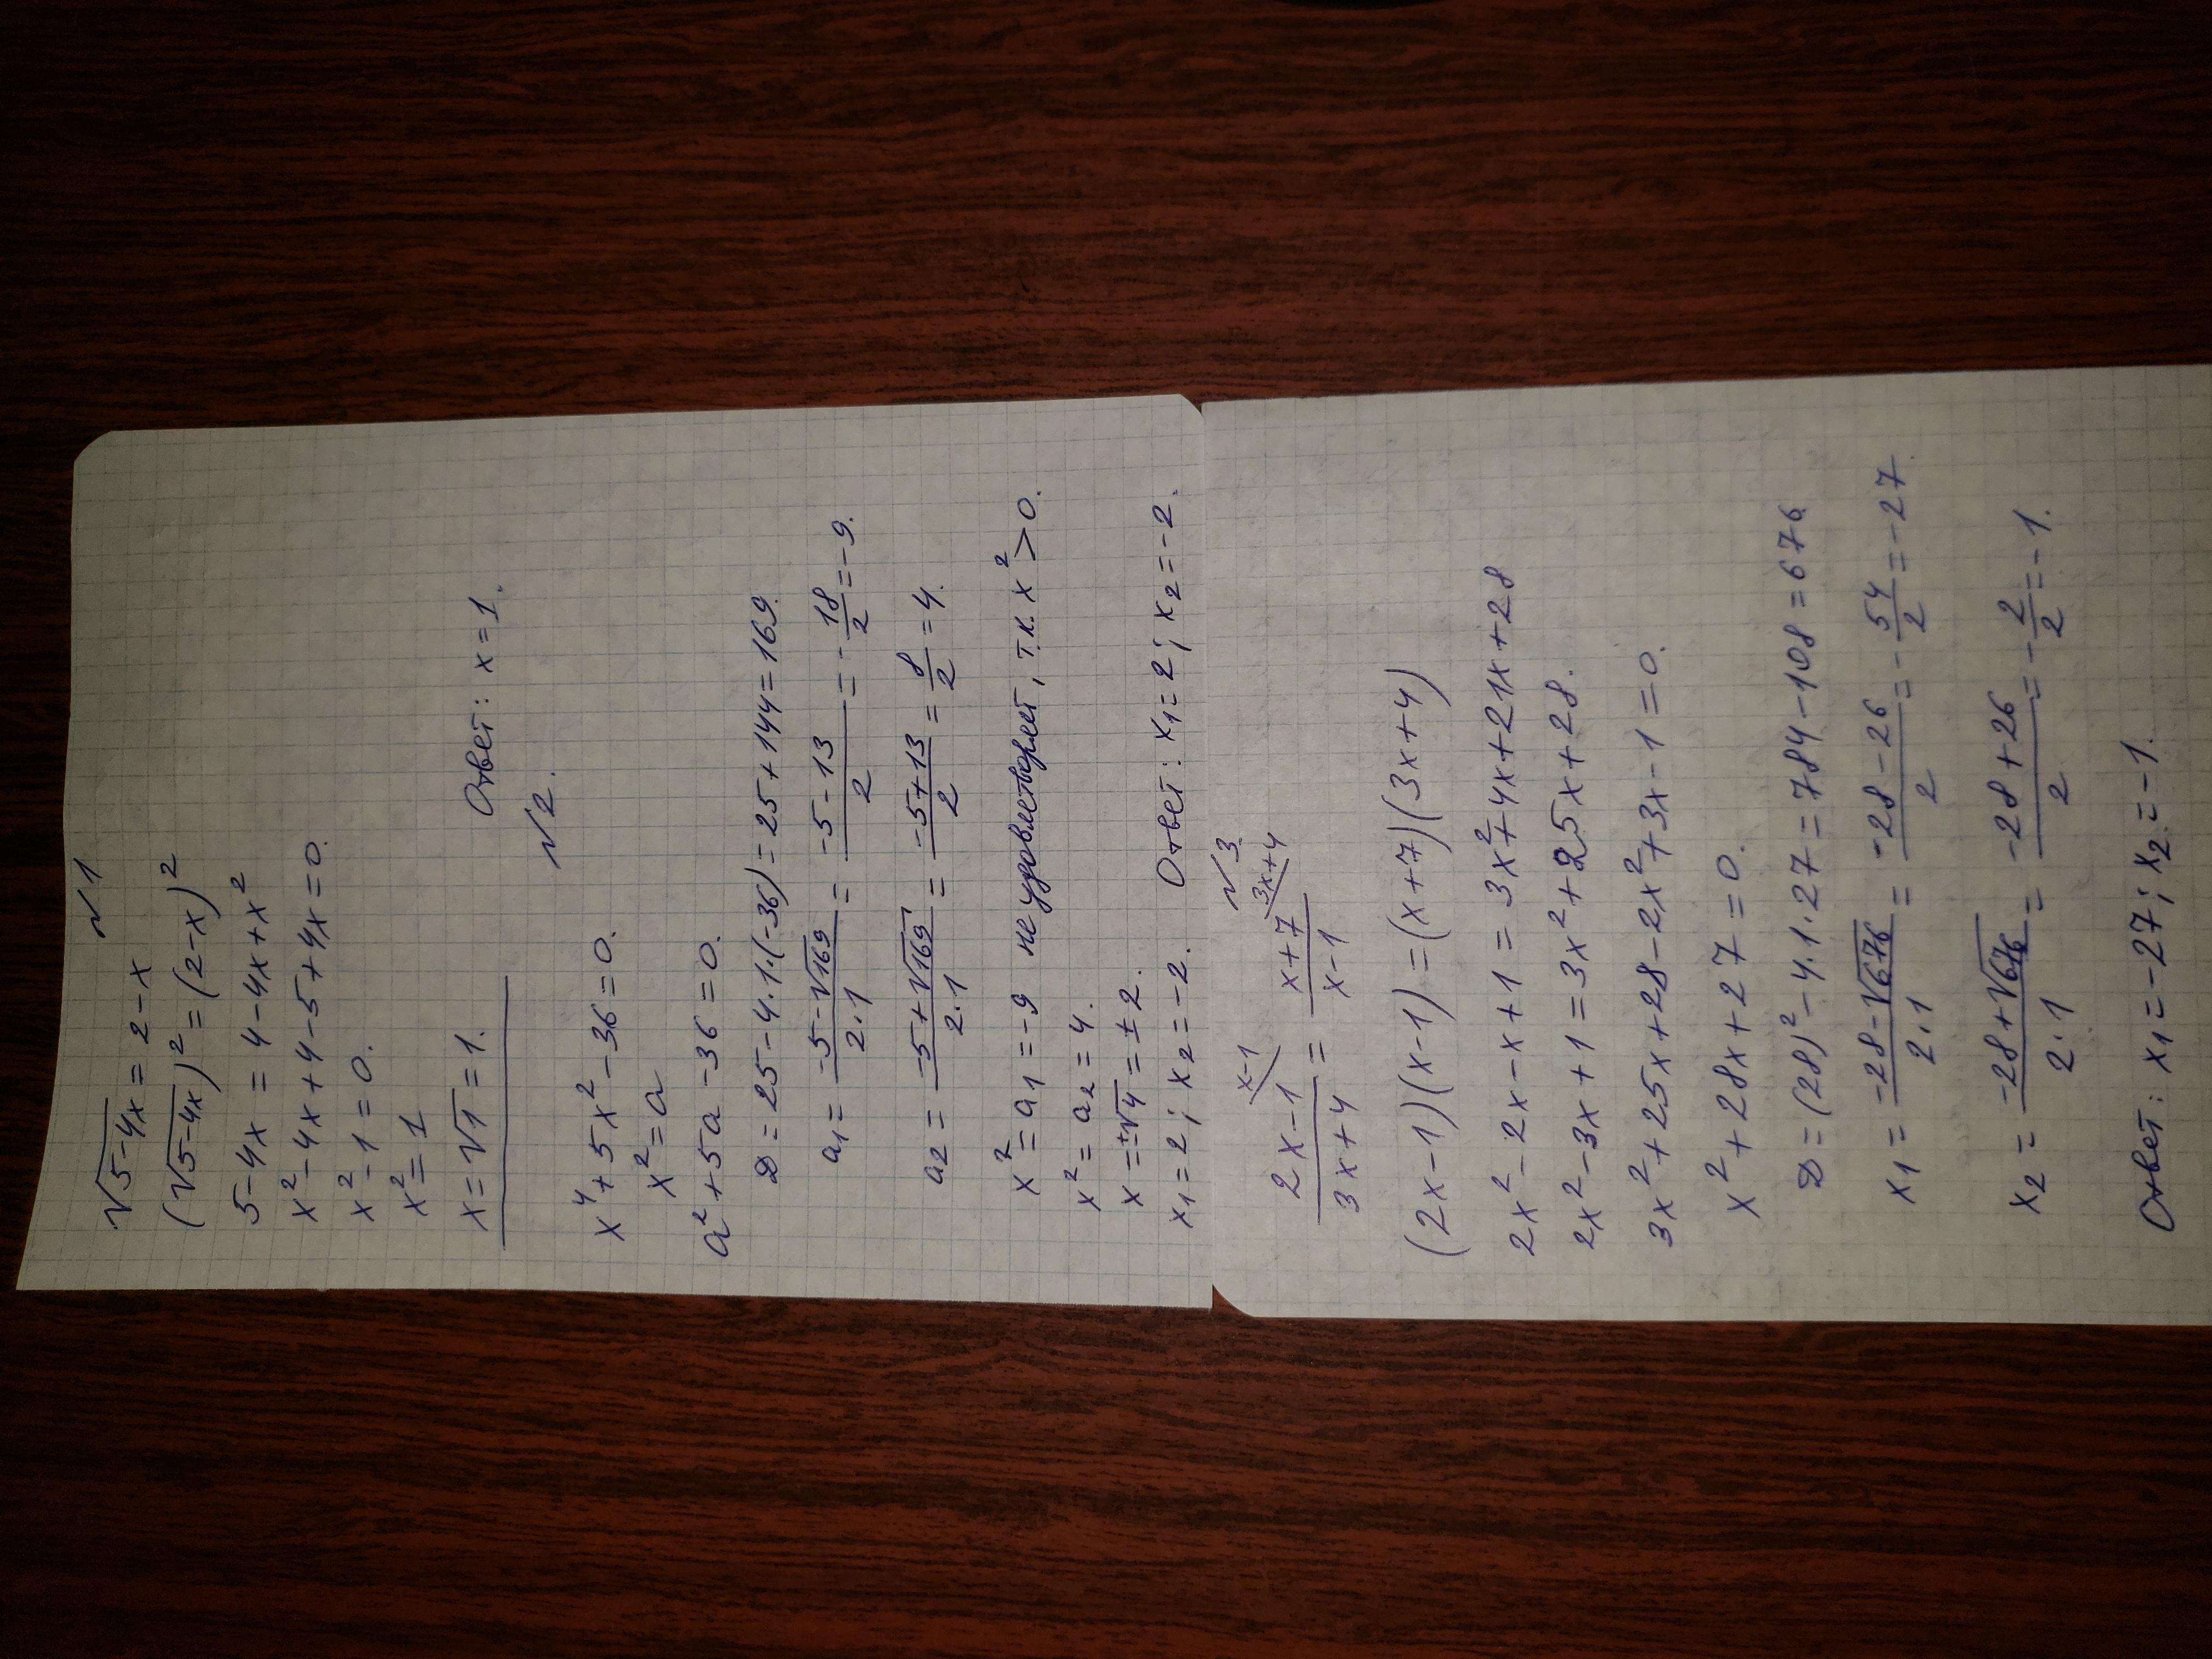 №1
√5-4x = 2-x
(√5-4x)² = (2-x)²
5-4x = 4-4x+x²
x²-4x+4-5+4x=0.
x²-1=0.
x²=1
x=√1=1.
Ответ: x=1.
№2.
x⁴+5x²-36=0.
x²=a
a²+5a-36=0.
D=25-4·1·(-36)=25+144=169.
a₁ = (-5-√169)/(2·1) = (-5-13)/2 = -18/2 = -9.
a₂ = (-5+√169)/(2·1) = (-5+13)/2 = 8/2 = 4.
x²=a₁=-9 не удовлетворяет, т.к. x²>0.
x²=a₂=4.
x=±√4=±2.
x₁=2; x₂=-2. Ответ: x₁=2; x₂=-2.
№3
(2x-1)/(3x+4) \x-1 = (x+7)/(x-1) \3x+4
(2x-1)(x-1)=(x+7)(3x+4)
2x²-2x-x+1=3x²+4x+21x+28
2x²-3x+1=3x²+25x+28.
3x²+25x+28-2x²+3x-1=0.
x²+28x+27=0.
D=(28)²-4·1·27=784-108=676
x₁ = (-28-√676)/(2·1) = (-28-26)/2 = -54/2 = -27.
x₂ = (-28+√676)/(2·1) = (-28+26)/2 = -2/2 = -1.
Ответ: x₁=-27; x₂=-1.